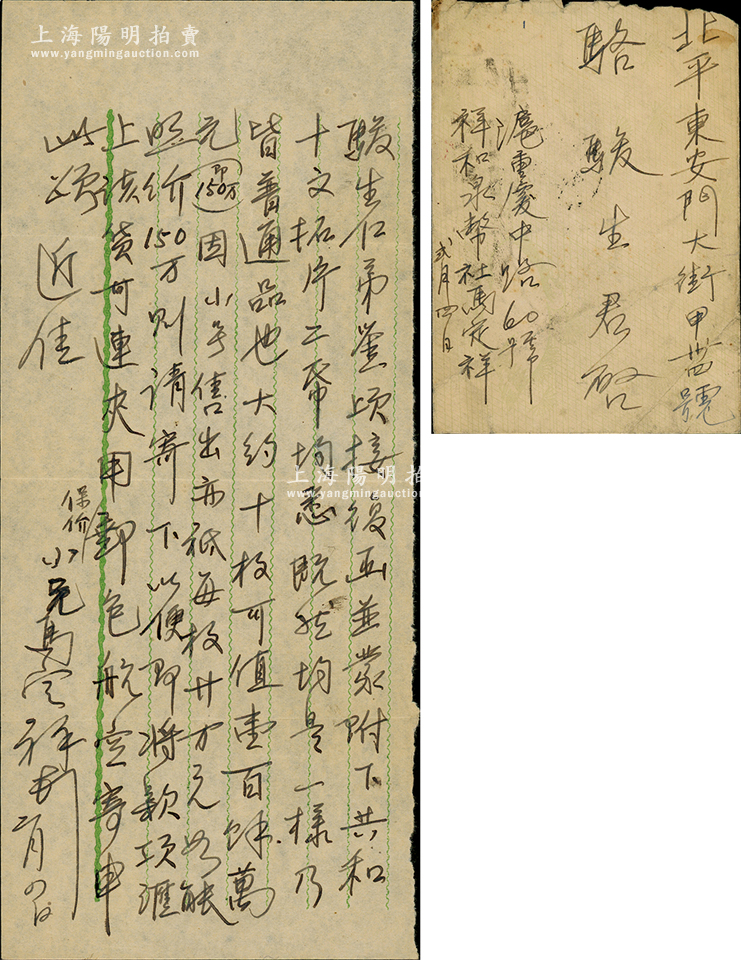 上海陽明拍賣
www.yangmingauction.com
駿生仁弟鉴頃接後函並蒙附下共和
十文拓片二帋均悉既然均是一樣乃
皆普通品也大约十枚可值壹百餘萬
元即150万因小号售出亦祇每枚廿万元如能
照价150万则请寄下以便即将款项滙
上该货可連夹用郵包航空寄申
保价
此頌
近佳
小兄馬定祥
二月四日
上海陽明拍賣
www.yangmingauction.com
北平東安門大街甲卅四號
駱駿生君啓
滬重慶中路60號
祥和泉幣社馬定祥
弍月四日